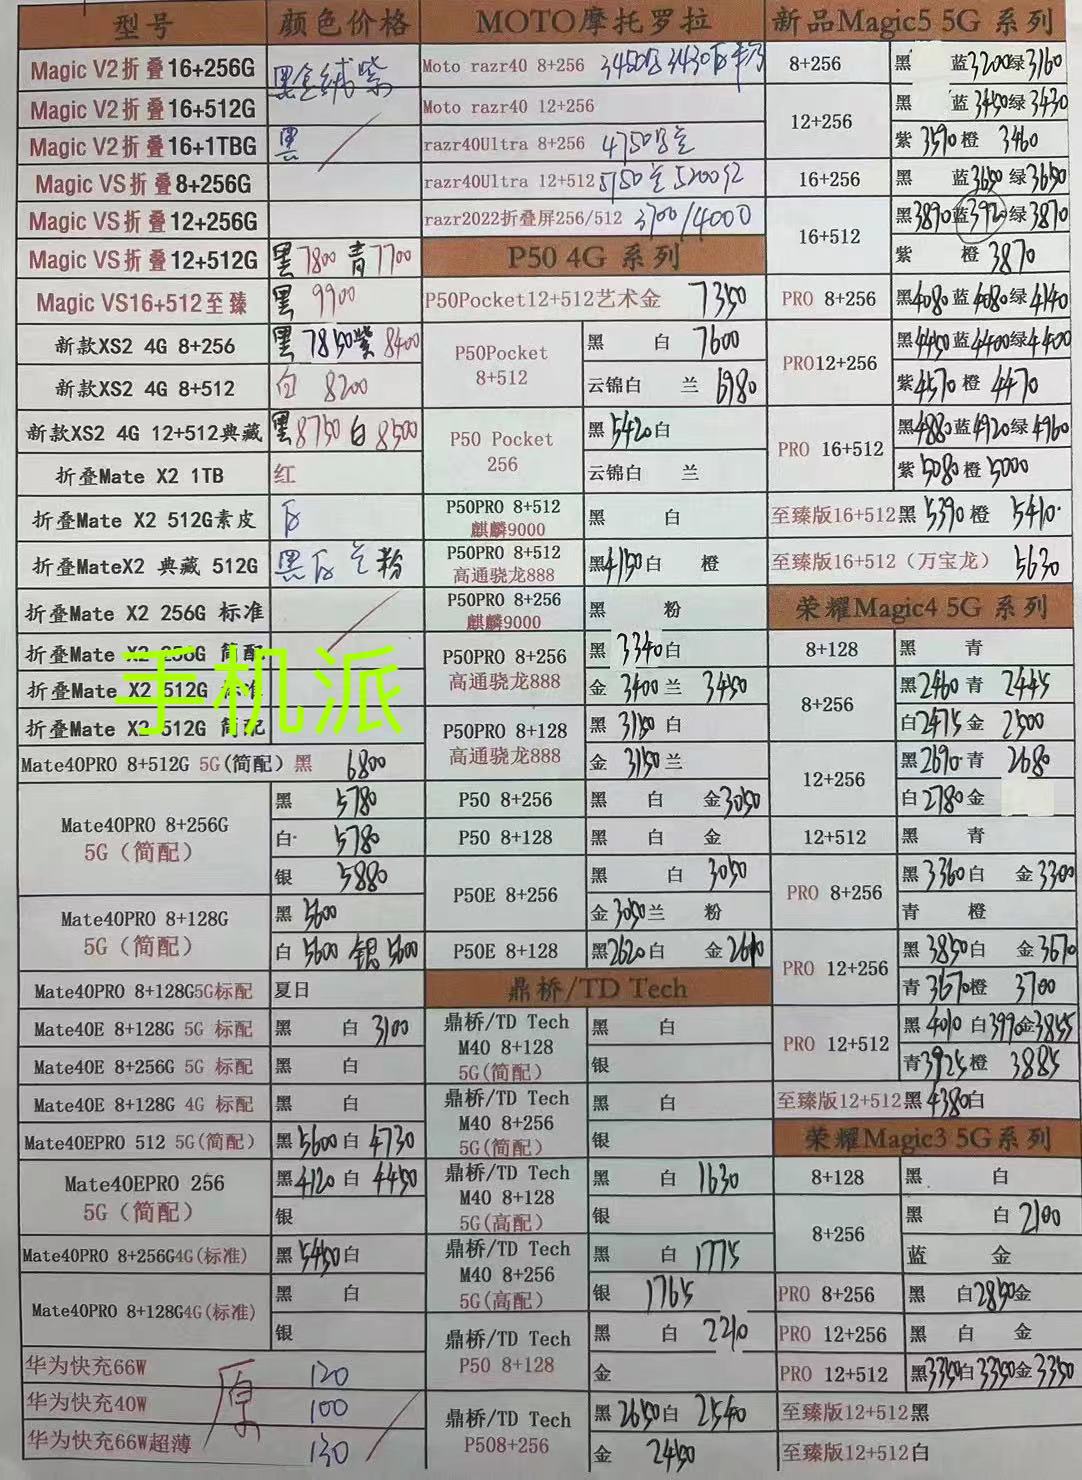 型号 颜色价格
Magic V2折叠16+256G 黑金绒紫
Magic V2折叠16+512G
Magic V2折叠16+1TBG 黑
Magic VS折叠8+256G
Magic VS折叠12+256G
Magic VS折叠12+512G 黑7800 青7700
Magic VS16+512至臻 黑 9900
新款XS2 4G 8+256 黑 7850紫8400
新款XS2 4G 8+512 白 8200
新款XS2 4G 12+512典藏 黑8750白8500
折叠Mate X2 1TB 红
折叠Mate X2 512G素皮
折叠MateX2 典藏 512G 粉
折叠Mate X2 256G 标准
折叠Mate X2 256G 简配
折叠Mate X2 512G 标准
折叠Mate X2 512G 简配
手机派
Mate40PRO 8+512G 5G(简配) 黑 6800
Mate40PRO 8+256G
5G（简配）
黑 5780
白 5780
银 5880
Mate40PRO 8+128G
5G（简配）
黑 5600
白 5600 银 5600
Mate40PRO 8+128G5G标配 夏日
Mate40E 8+128G 5G 标配 黑 白 3100
Mate40E 8+256G 5G 标配 黑 白
Mate40E 8+128G 4G 标配 黑 白
Mate40EPRO 512 5G(简配) 黑5600白 4730
Mate40EPRO 256
5G（简配）
黑4120白 4450
银
Mate40PRO 8+256G4G(标准) 黑5450白
Mate40PRO 8+128G4G(标准)
黑 白
银
华为快充66W 120
华为快充40W 100
华为快充66W超薄 130
原
MOTO摩托罗拉
Moto razr40 8+256
Moto razr40 12+256
razr40Ultra 8+256
razr40Ultra 12+512
razr2022折叠屏256/512 3700/4000
P50 4G 系列
P50Pocket12+512艺术金 7350
P50Pocket
8+512
黑 白 7600
云锦白 兰 6980
P50 Pocket
256
黑 5420白
云锦白 兰
P50PRO 8+512
麒麟9000
黑 白
P50PRO 8+512
高通骁龙888
黑4150白 橙
P50PRO 8+256
麒麟9000
黑 粉
P50PRO 8+256
高通骁龙888
黑 3340白
金 3400兰 3450
P50PRO 8+128
高通骁龙888
黑 3150 白
金 3150兰
P50 8+256 黑 白 金3050
P50 8+128 黑 白 金
P50E 8+256
黑 白 3050
金3050兰 粉
P50E 8+128 黑2620白 金
鼎桥/TD Tech
鼎桥/TD Tech
M40 8+128
5G(简配)
黑 白
银
鼎桥/TD Tech
M40 8+256
5G(简配)
黑 白
银
鼎桥/TD Tech
M40 8+128
5G(高配)
黑 白 1630
银
鼎桥/TD Tech
M40 8+256
5G(高配)
黑 白 1775
银 1765
鼎桥/TD Tech
P50 8+128
黑 白 2210
金
鼎桥/TD Tech
P508+256
黑 2650白 2540
金 2450
新品Magic5 5G 系列
8+256 黑 蓝3200绿3160
12+256
黑 蓝3450绿3430
紫 3590橙 3460
16+256 黑 蓝3650绿3650
16+512
黑3890蓝3920绿3870
紫 橙 3870
PRO 8+256 黑4080蓝4080绿4140
PRO12+256
黑4450蓝4400绿4400
紫4570橙 4470
PRO 16+512
黑4880蓝4920绿4960
紫5080橙5000
至臻版16+512黑 5390 橙 5410
至臻版16+512（万宝龙） 5630
荣耀Magic4 5G 系列
8+128 黑 青
8+256
黑2460青 2445
白2475金 2500
12+256
黑2690青 2680
白2780金
12+512 黑 青
PRO 8+256
黑3360白 金3300
青 橙
PRO 12+256
黑3850白 金3670
青3670橙 3700
PRO 12+512
黑 4010 白3990金3855
青3925橙 3885
至臻版12+512黑4380白
荣耀Magic3 5G系列
8+128 黑 白
8+256
黑 白2100
蓝 金
PRO 8+256 黑 白2850金
PRO 12+256 黑 白 金
PRO 12+512 黑3350白3350金3350
至臻版12+512黑
至臻版12+512白